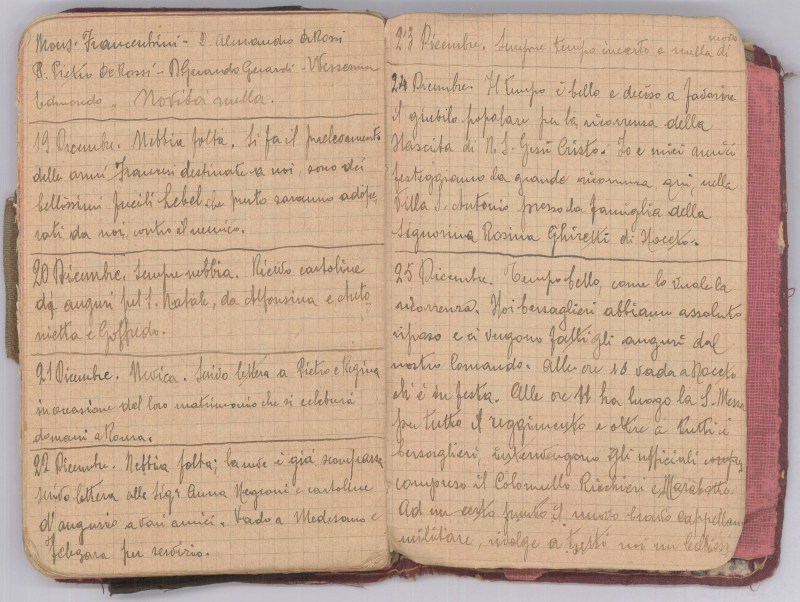 Mons. Francentini - D. Alessandro de Rossi
D. Pietro De Rossi - D Gerardo Gerardi -
Edmondo. Novità nulla.
19 Dicembre. Nebbia folta. Si fa il prelevamento
delle armi Francesi destinate a noi, sono dei
bellissimi fucili Lebel che presto saranno adope
rati da noi, contro il nemico.
20 Dicembre. Sempre nebbia. Ricevo cartoline
di auguri pel S. Natale, da Alfonsina e Anto
nietta e Goffredo.
21 Dicembre. Nevica. Scrivo lettera a Pietro e Regina
in occasione del loro matrimonio che si celebrerà
domani a Roma.
22 Dicembre. Nebbia folta; la neve è già scomparsa
scrivo lettera alle Sigr Anna Negroni e cartoline
d'augurio a vari amici. Vado a Medesano e
Felegara per servizio.
23 Dicembre. Sempre tempo incerto e nulla di nuovo
24 Dicembre. Il tempo è bello e deciso a favorire
il giubilo popolare per la ricorrenza della
Nascita di N. S. Gesù Cristo. Io e miei amici
festeggiamo la grande ricorrenza, qui, nella
Villa S. Antonio presso la famiglia della
Signorina Rosina Ghiretti di Noceto.
25 Dicembre. Tempo bello, come lo vuole la
ricorrenza. Noi bersaglieri abbiamo assoluto
riposo e ci vengono fatti gli auguri dal
nostro Comando. Alle ore 10 vado a Noceto
ch'è in festa. Alle ore 11 ha luogo la S. Messa
per tutto il reggimento e oltre a tutti i
bersaglieri, intervengono gli ufficiali
compreso il Colonnello Ricchieri e Marabotto
Ad un certo punto il nuovo bravo cappellano
militare, rivolge a tutti noi un